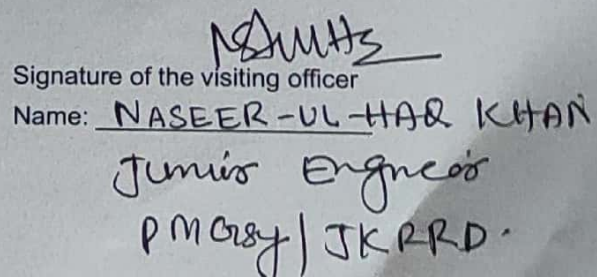 Signature of the visiting officer
Name: NASEER-UL-HAQ KHAN
Junior Engneer
PMGSY | JKRRD.